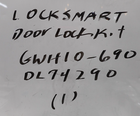 LOCKSMART
DOOR LOCK Kit
GWH10-690
DL74290
(1)